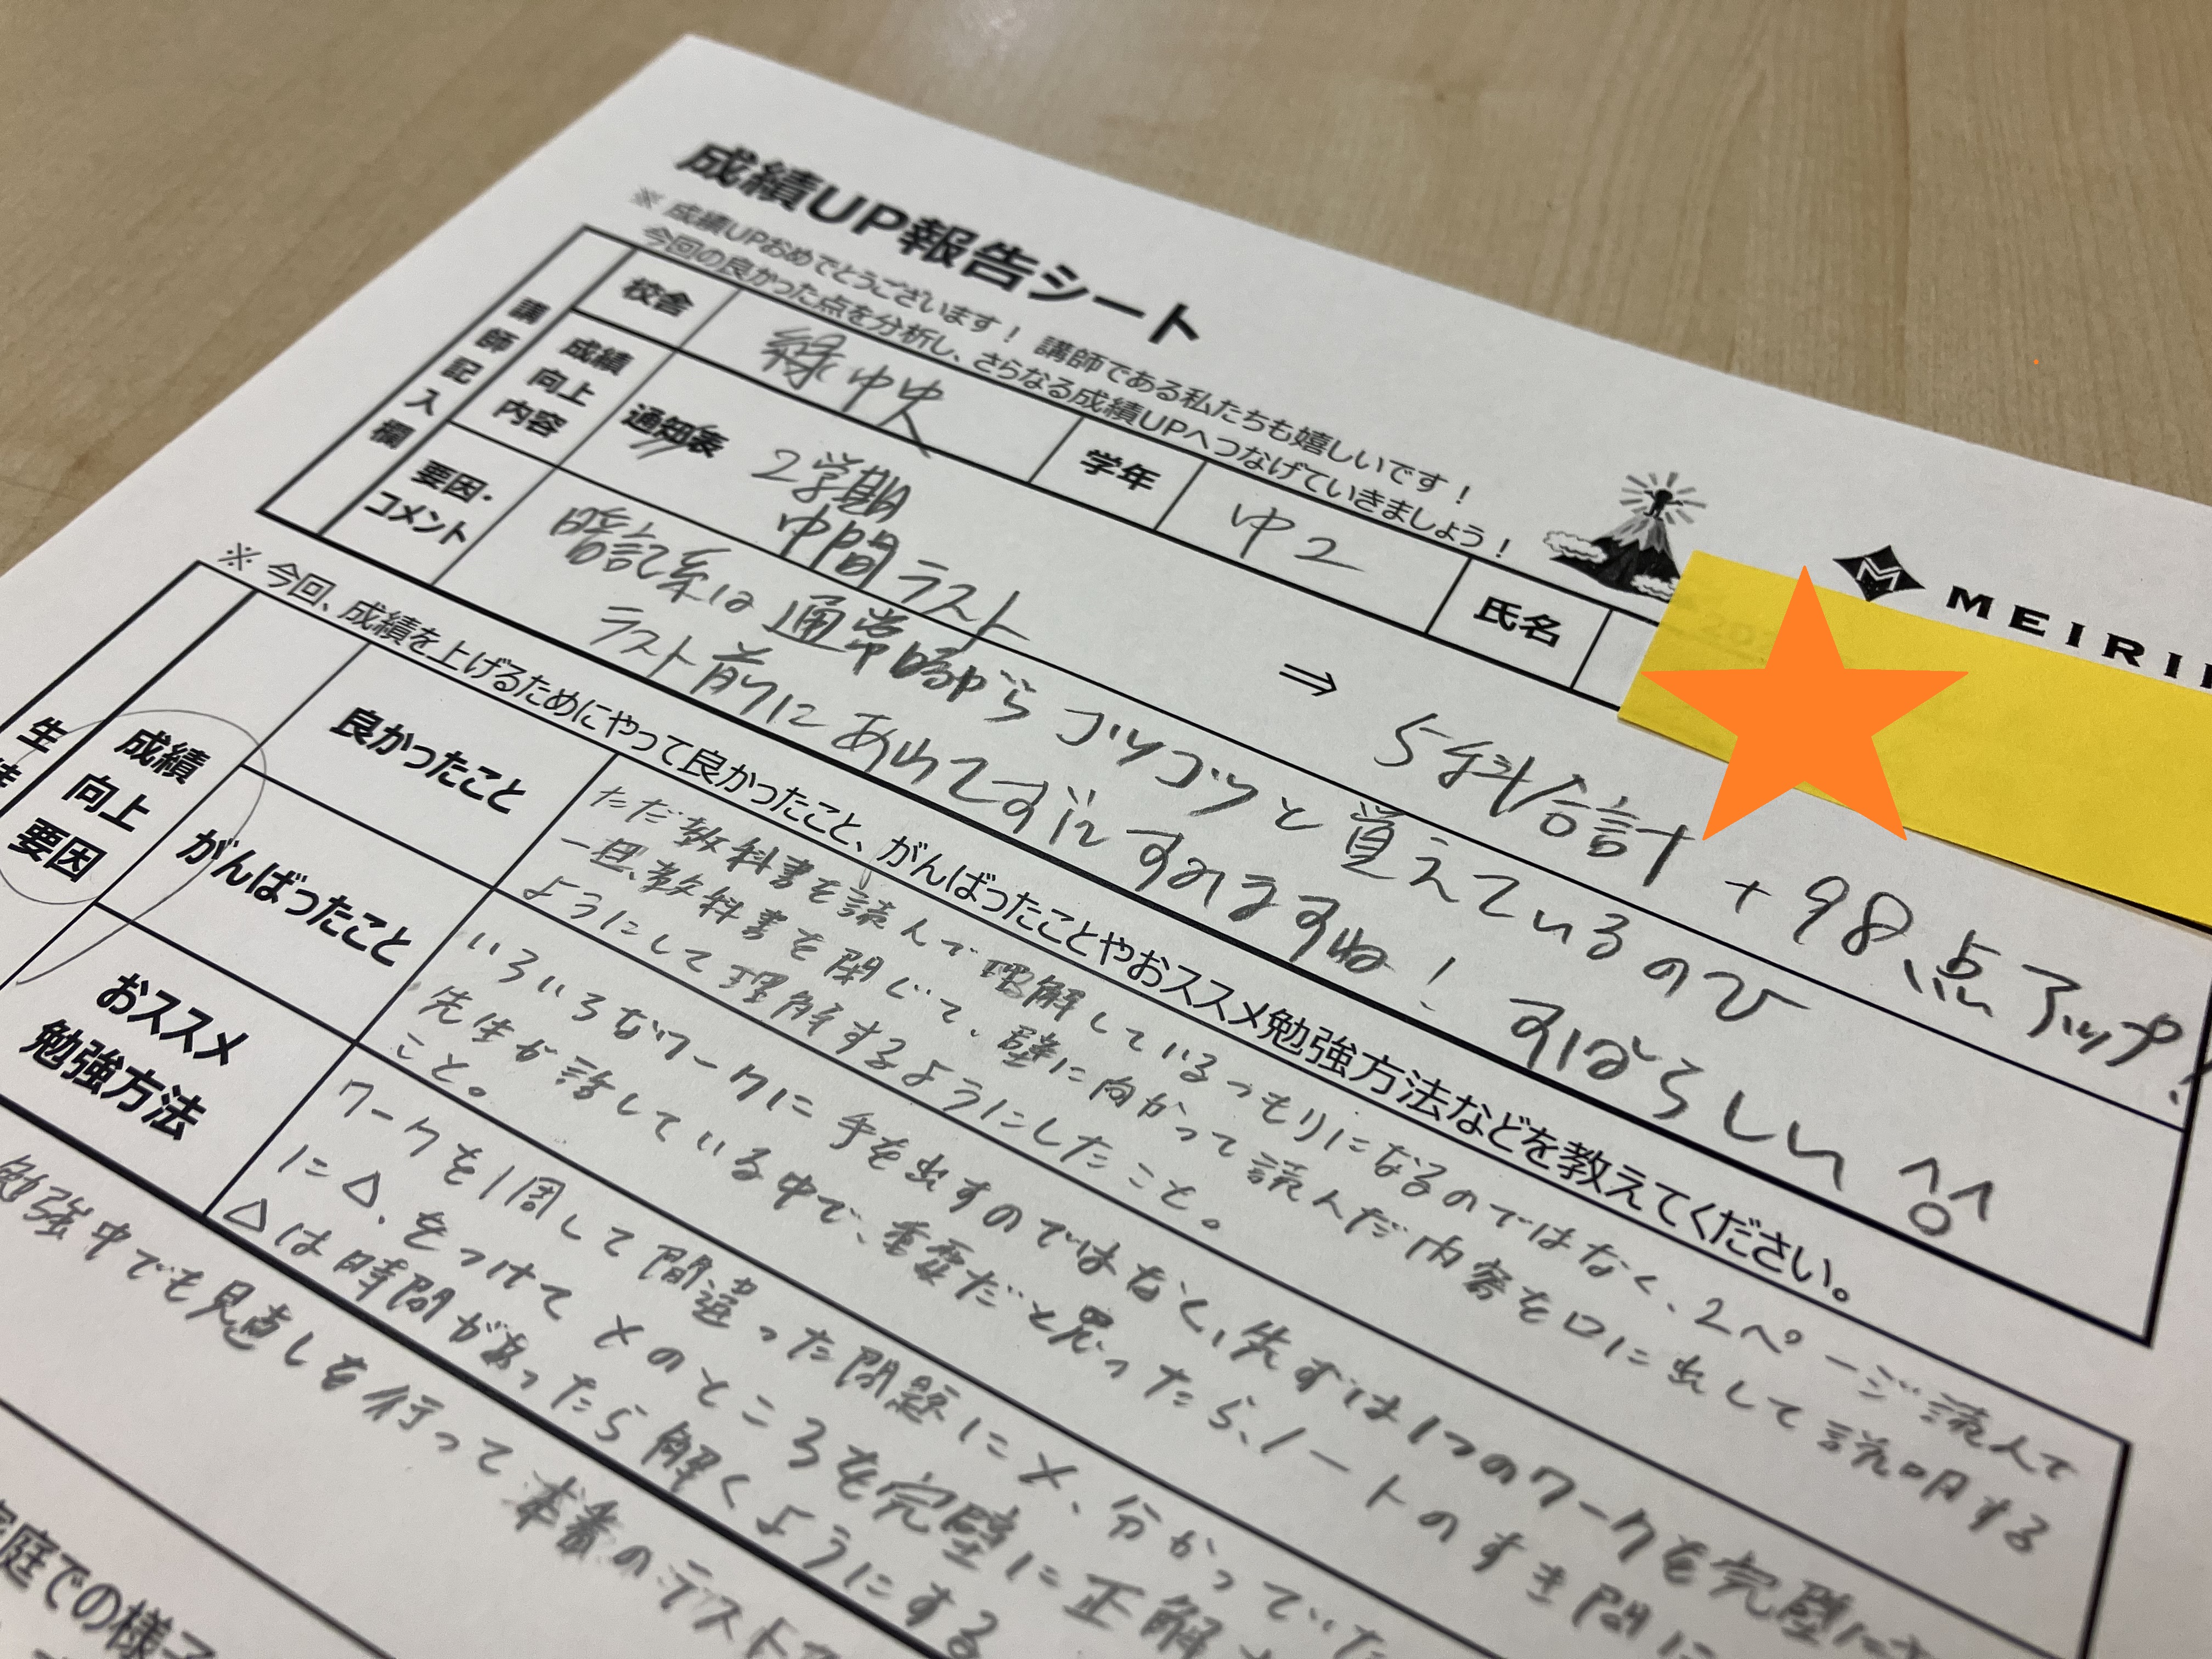 成績UP報告シート
※ 成績UPおめでとうございます！ 講師である私たちも嬉しいです！
今回の良かった点を分析し、さらなる成績UPへつなげていきましょう！
MEIRI
講師記入欄
校舎
緑中央
学年
中2
氏名
成績
向上
内容
通知表
2学期
中間テスト
⇒
5科合計 +98点アップ！
要因・
コメント
暗記系は通常時からコツコツと覚えているので
テスト前にあわてずにすみますね！ すばらしい ^o^
※ 今回、成績を上げるためにやって良かったこと、がんばったことやおススメ勉強方法などを教えてください。
生徒
成績
向上
要因
良かったこと
ただ教科書を読んで理解しているつもりになるのではなく、2ページ読んで
一旦、教科書を閉じて、壁に向かって読んだ内容を口に出して説明する
ようにして理解するようにしたこと。
がんばったこと
いろいろなワークに手を出すのではなく、先ずは1つのワークを完璧に
先生が話している中で、重要だと思ったら、ノートのすき間に
こと。
おススメ
勉強方法
ワークを1周して間違った問題に×、分かっていた
に△、をつけて×のところを完璧に正解
△は時間があったら解くようにする
勉強中でも見直しを行って本番のテストで
家庭での様子